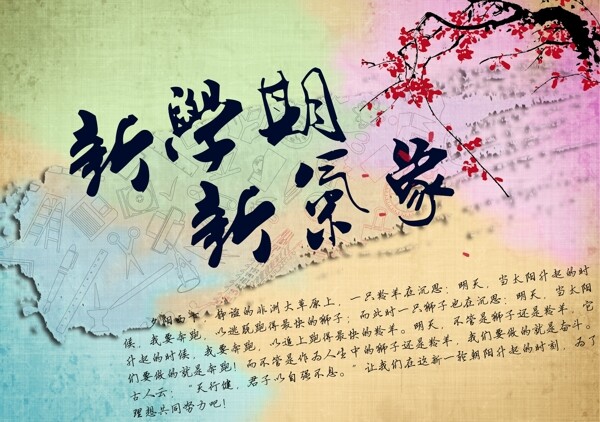 新學期
新氣象
夕阳西下,静谧的非洲大草原上,一只羚羊在沉思:明天,当太阳升起的时
候,我要奔跑,以逃脱跑得最快的狮子;而此时一只狮子也在沉思:明天,当太阳
升起的时候,我要奔跑,以追上跑得最快的羚羊。明天,不管是狮子还是羚羊,它
们要做的就是奔跑!而不管是作为人生中的狮子还是羚羊,我们要做的就是奋斗。
古人云:“天行健,君子以自强不息。”让我们在这新一轮朝阳升起的时刻,为了
理想共同努力吧!